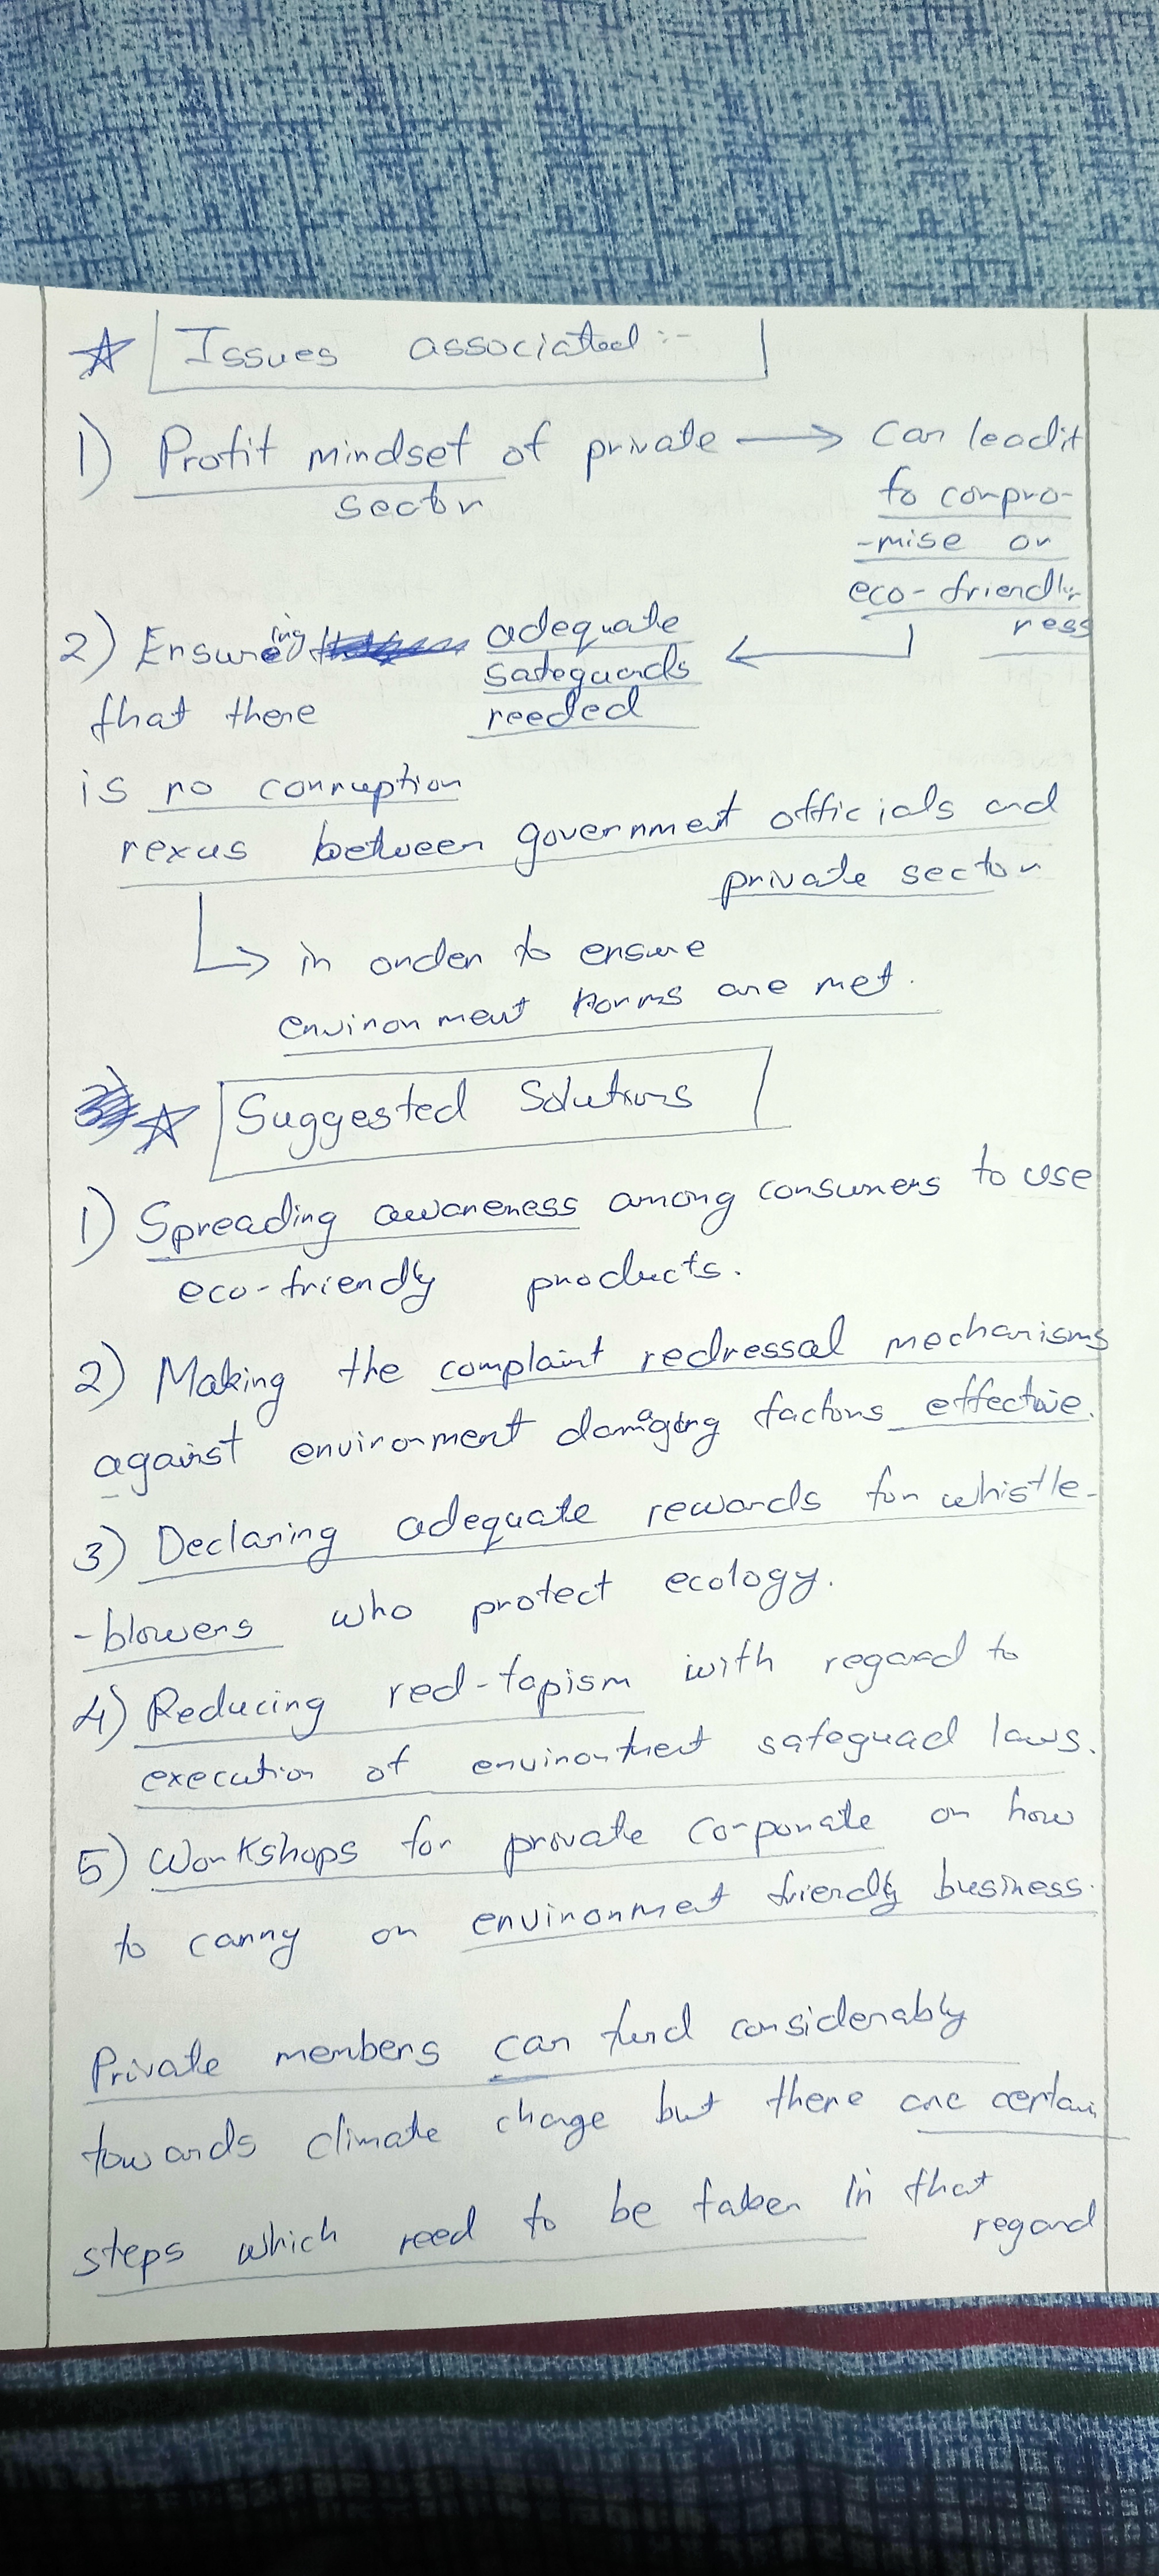 ☆ Issues associated :-
1) Profit mindset of private → Can lead it
sector
to compro-
-mise on
eco-friendly
ness
2) Ensureing adequate
safeguards
that there needed
is no corruption
nexus between government officials and
private sector
↳ in order to ensure
environment norms are met.
☆ Suggested Solutions
1) Spreading awareness among consumers to use
eco-friendly products.
2) Making the complaint redressal mechanisms
against environment damaging factors effective.
3) Declaring adequate rewards for whistle-
-blowers who protect ecology.
4) Reducing red-tapism with regard to
execution of environment safeguad laws.
5) Workshops for private corporate on how
to carry on environment friendly business.
Private members can fund considerably
towards climate change but there are certain
steps which need to be taken in that
regard